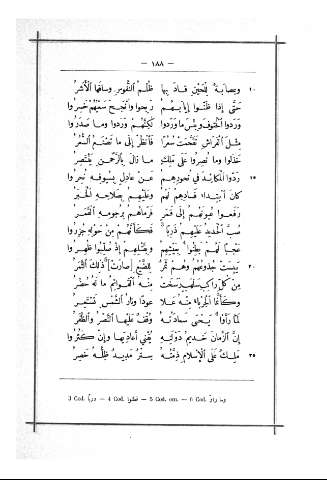 — ١٨٨ —
١٠ وبصابة للحين قاد بها ظلم النفوس وساقها الأشر
حتى إذا ظنوا بأنهم ربحوا وأنجح سعيهم خسروا
وردوا الحتوف وبئس ما وردوا لكنهم وردوا وما صدروا
مثل الفراش تقحمت سعرا فانظر إلى ما تصنع السعر
خذلوا وما نصروا على ملك ما زال بالرحمن ينتصر
١٥ ردوا المكايد في نحورهم عن عادل بسيوفه نحروا
كان ابتداء فسادهم لهم وعليهم بصلاحه الخبر
رفعوا عيونهم إلى قمر فرماهم برجومه القمر
صب الحديد عليهم ذربا فكأنهم من حوله جزروا
عجبا لهم بطروا ببيتهم وبمثلهم إذ صلبوا ظهروا
٢٠ يبست جذوعهم وهم ثمر للضبع [صارت] ذلك الثمر
من كل راكب سخت منه القوائم ما له حضر
وكأنما الحرباء منه علا عودا ونار الشمس تستعر
لما رأوا يحيى سعادته وقف عليها النصر والظفر
إن الزمان خديم دولته يفني أعاديها وإن كثروا
٢٥ ملك على الإسلام ذمته ستر مديد ظله خصر
3 Cod. دربا — 4 Cod. فصلوا — 5 Cod. om. — 6 Cod. وما زار